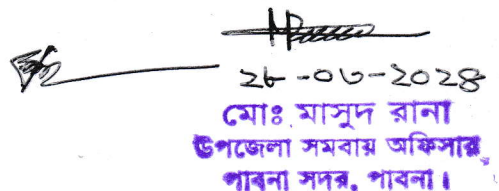 ২৮-০৩-২০২৪
মোঃ মাসুদ রানা
উপজেলা সমবায় অফিসার
পাবনা সদর, পাবনা।